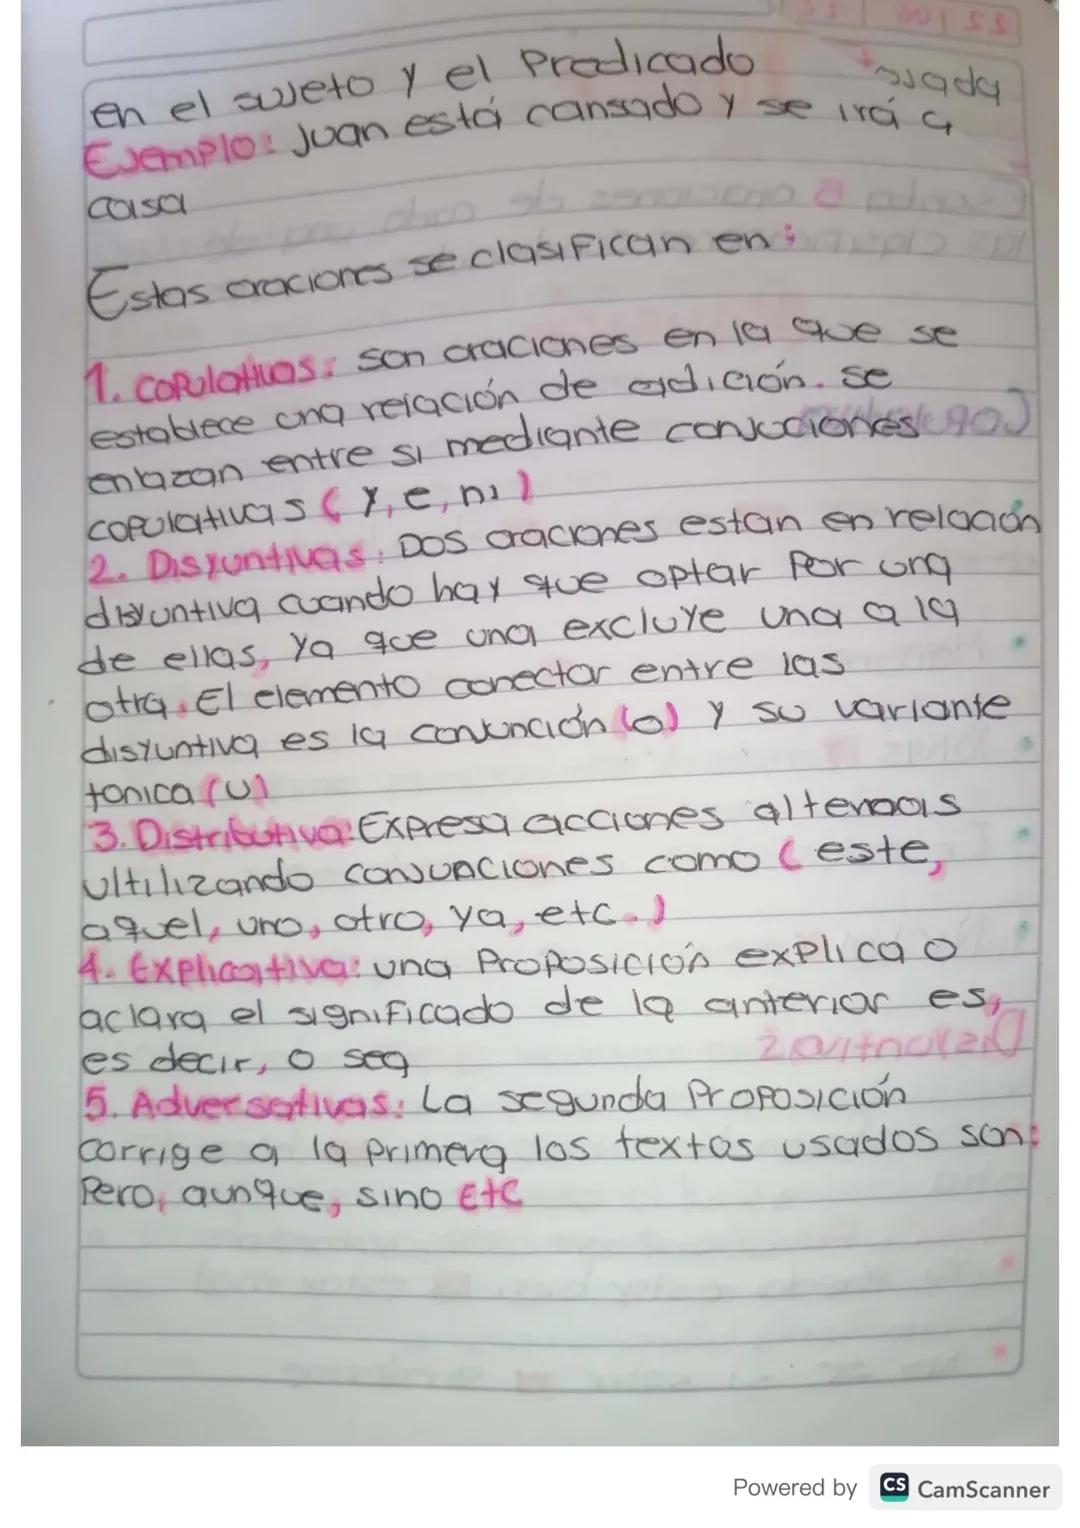 en el sujeto y el Predicado
Ejemplo: Juan está cansado y se irá a
casa
Estas oraciones se clasifican en:
1. copulativas: son oraciones en la que se
establece una relación de adición. se
enlazan entre si mediante conjuciones
copulativas (y, e, ni)
2. Disyuntivas: Dos oraciones estan en relación
disyuntiva cuando hay que optar Por una
de ellas, ya que una excluye una a la
otra. El elemento conector entre las
disyuntiva es la conjunción (o) y su variante
tonica (u)
3. Distributiva: Expresa acciones alternas
ultilizando conjunciones como (este,
aquel, uno, otro, ya, etc.)
4. Explicativa: una Proposición explica o
aclara el significado de la anterior es,
es decir, o sea
5. Adversativas: La segunda Proposición
corrige a la primera los textos usados son:
Pero, aunque, sino Etc
Powered by CS CamScanner